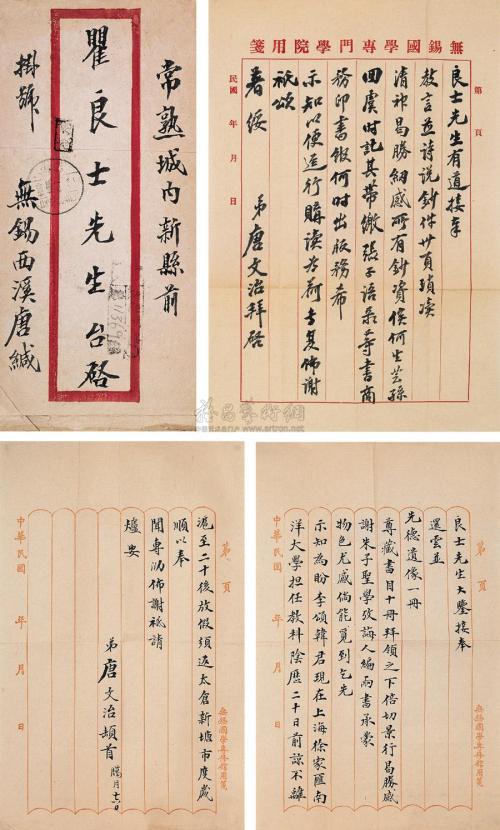 常熟城內新縣前
瞿良士先生台啓
掛號
無錫西溪唐緘
無錫國學專門學院用箋
第 頁
良士先生有道接奉
教言並詩說鈔件廿頁瑣凟
清神曷勝紉感所有鈔資俟何生芸孫
回虞時託其帶繳張子語錄等書商
務印書館何時出版務希
示知以便逕行購讀為荷專复佈謝
祇頌
暑綏
弟唐文治拜啓
民國 年 月 日
第 頁
良士先生大鑒接奉
還雲並
先德遺像一冊
尊藏書目十冊拜領之下倍切景行曷勝感
謝朱子聖學攷誨人編兩書承蒙
物色尤感倘能覓到乞先
示知為盼李頌韓君現在上海徐家匯南
洋大學擔任教科陰歷二十日前諒不離
無錫國學專修館用箋
中華民國 年 月 日
第 頁
滬至二十後放假須返太倉新塘市度歲
順以奉
聞專泐佈謝祇請
爐安
弟唐文治頓首
臘月
無錫國學專修館用箋
中華民國 年 月 日